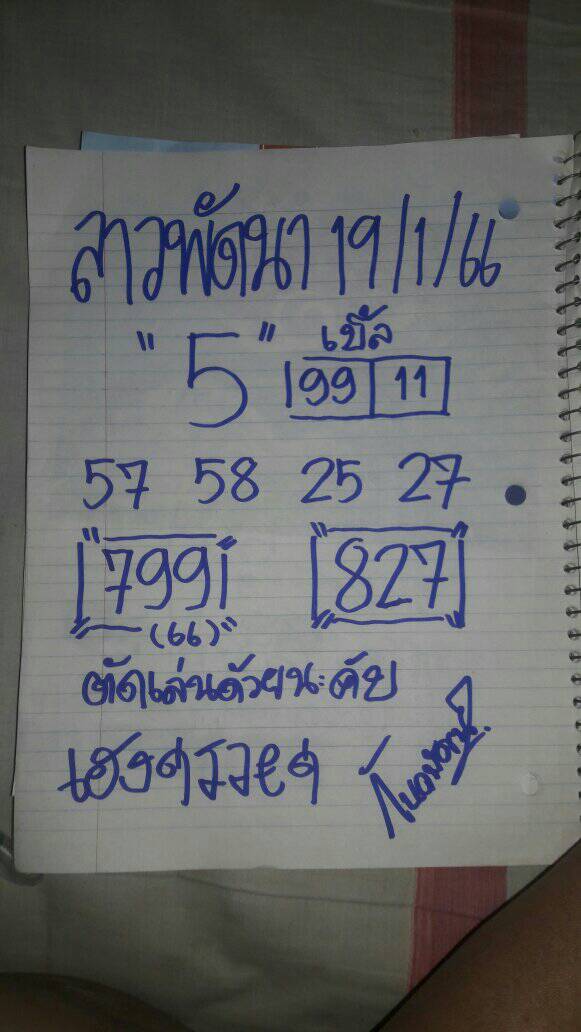 ลาวพัฒนา 19/1/66
"5" เบิ้ล
99 11
57 58 25 27
"799" "827"
(66)"
ตัดเล่นด้วยนะคับ
เฮงๆรวยๆ